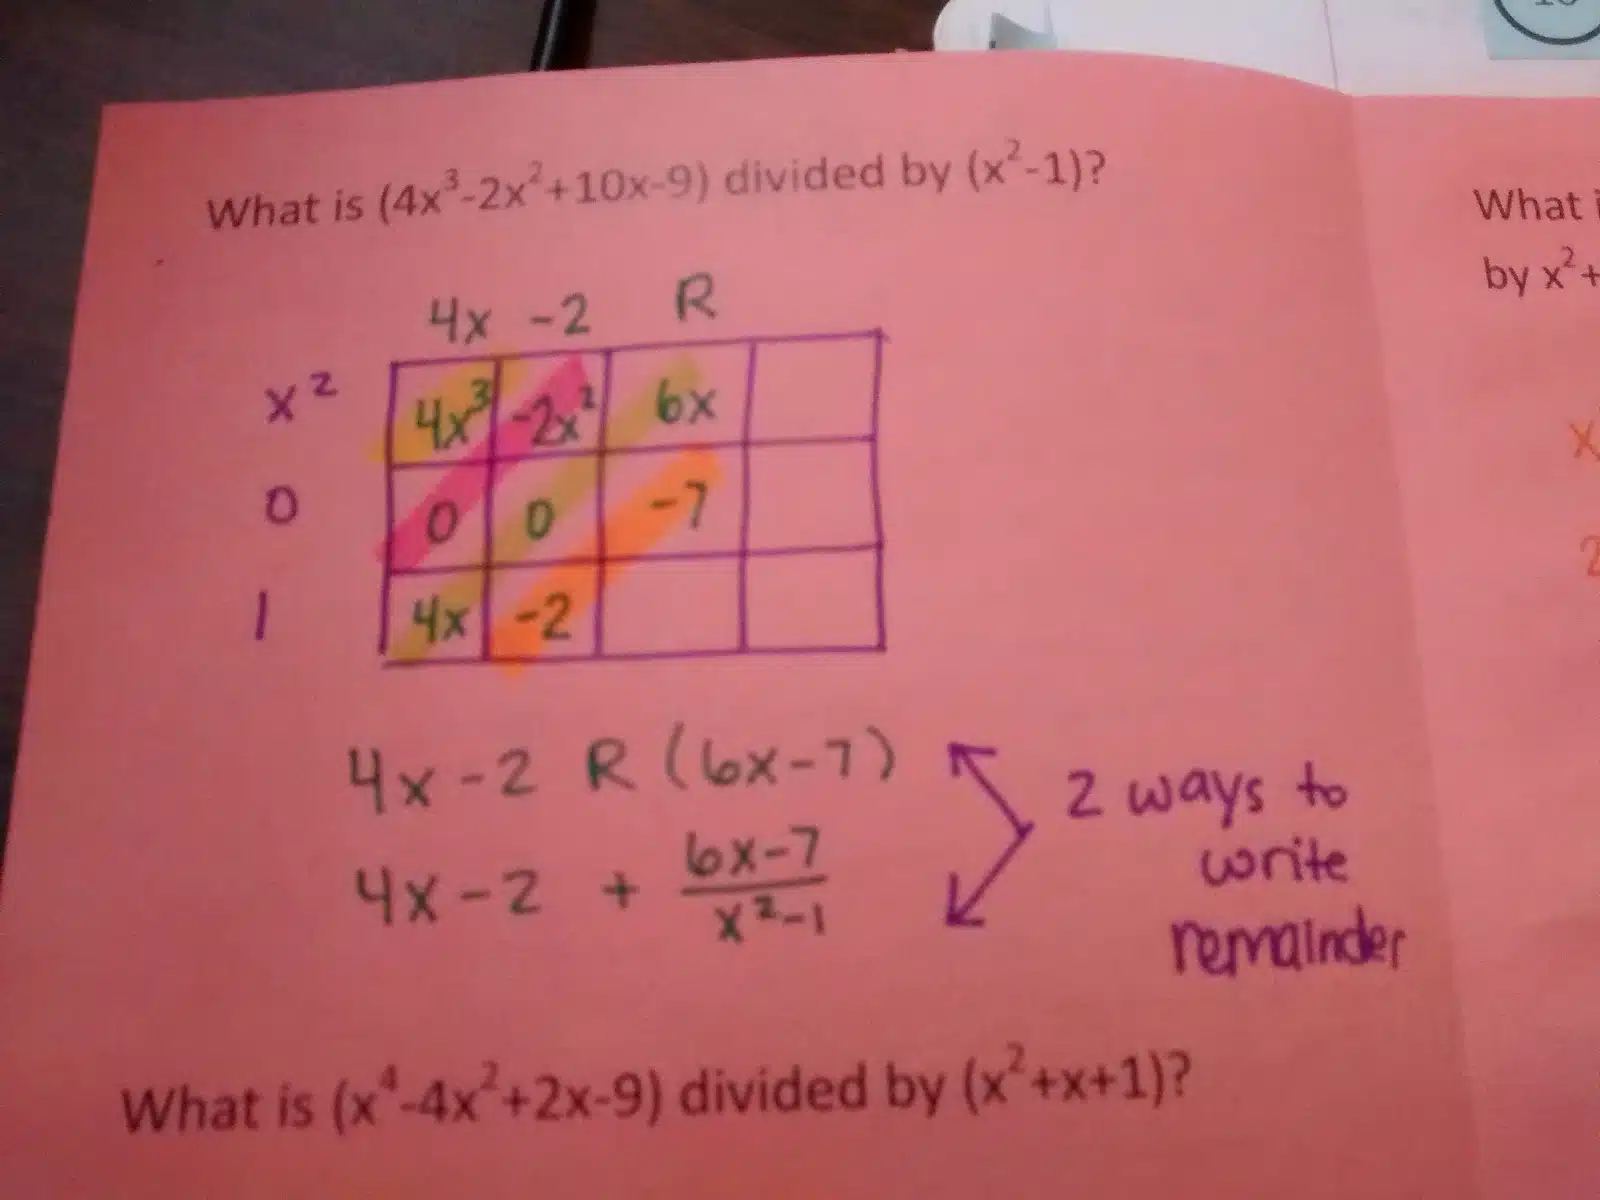 What is (4x³-2x²+10x-9) divided by (x²-1)?
4x -2 R
x² 4x³ -2x² 6x
0 0 0 -7
1 4x -2
4x - 2 R (6x-7)
4x - 2 + 6x-7
x²-1
2 ways to
write
remainder
What is (x⁴-4x²+2x-9) divided by (x²+x+1)?
What
by x²+
x
2